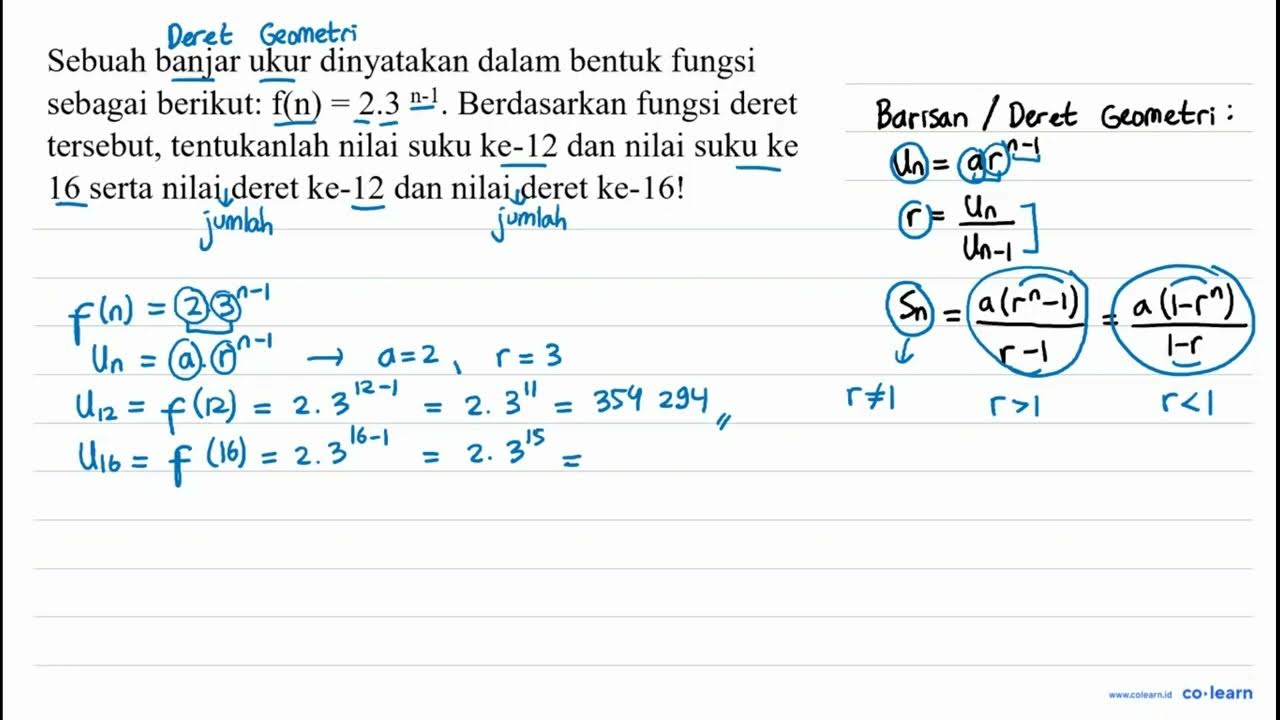 Deret Geometri
Sebuah banjar ukur dinyatakan dalam bentuk fungsi
sebagai berikut: f(n) = 2.3 ⁿ⁻¹. Berdasarkan fungsi deret
tersebut, tentukanlah nilai suku ke-12 dan nilai suku ke
16 serta nilai deret ke-12 dan nilai deret ke-16!
↓ jumlah ↓ jumlah
f(n) = 2 3ⁿ⁻¹
Uₙ = a.rⁿ⁻¹ → a=2, r=3
U₁₂ = f(12) = 2.3¹²⁻¹ = 2.3¹¹ = 354 294 //
U₁₆ = f(16) = 2.3¹⁶⁻¹ = 2.3¹⁵ =
Barisan / Deret Geometri:
Uₙ = arⁿ⁻¹
r = Uₙ / Uₙ₋₁ ]
Sₙ = a(rⁿ-1) / r-1 = a(1-rⁿ) / 1-r
↓
r≠1 r>1 r<1
www.colearn.id co·learn